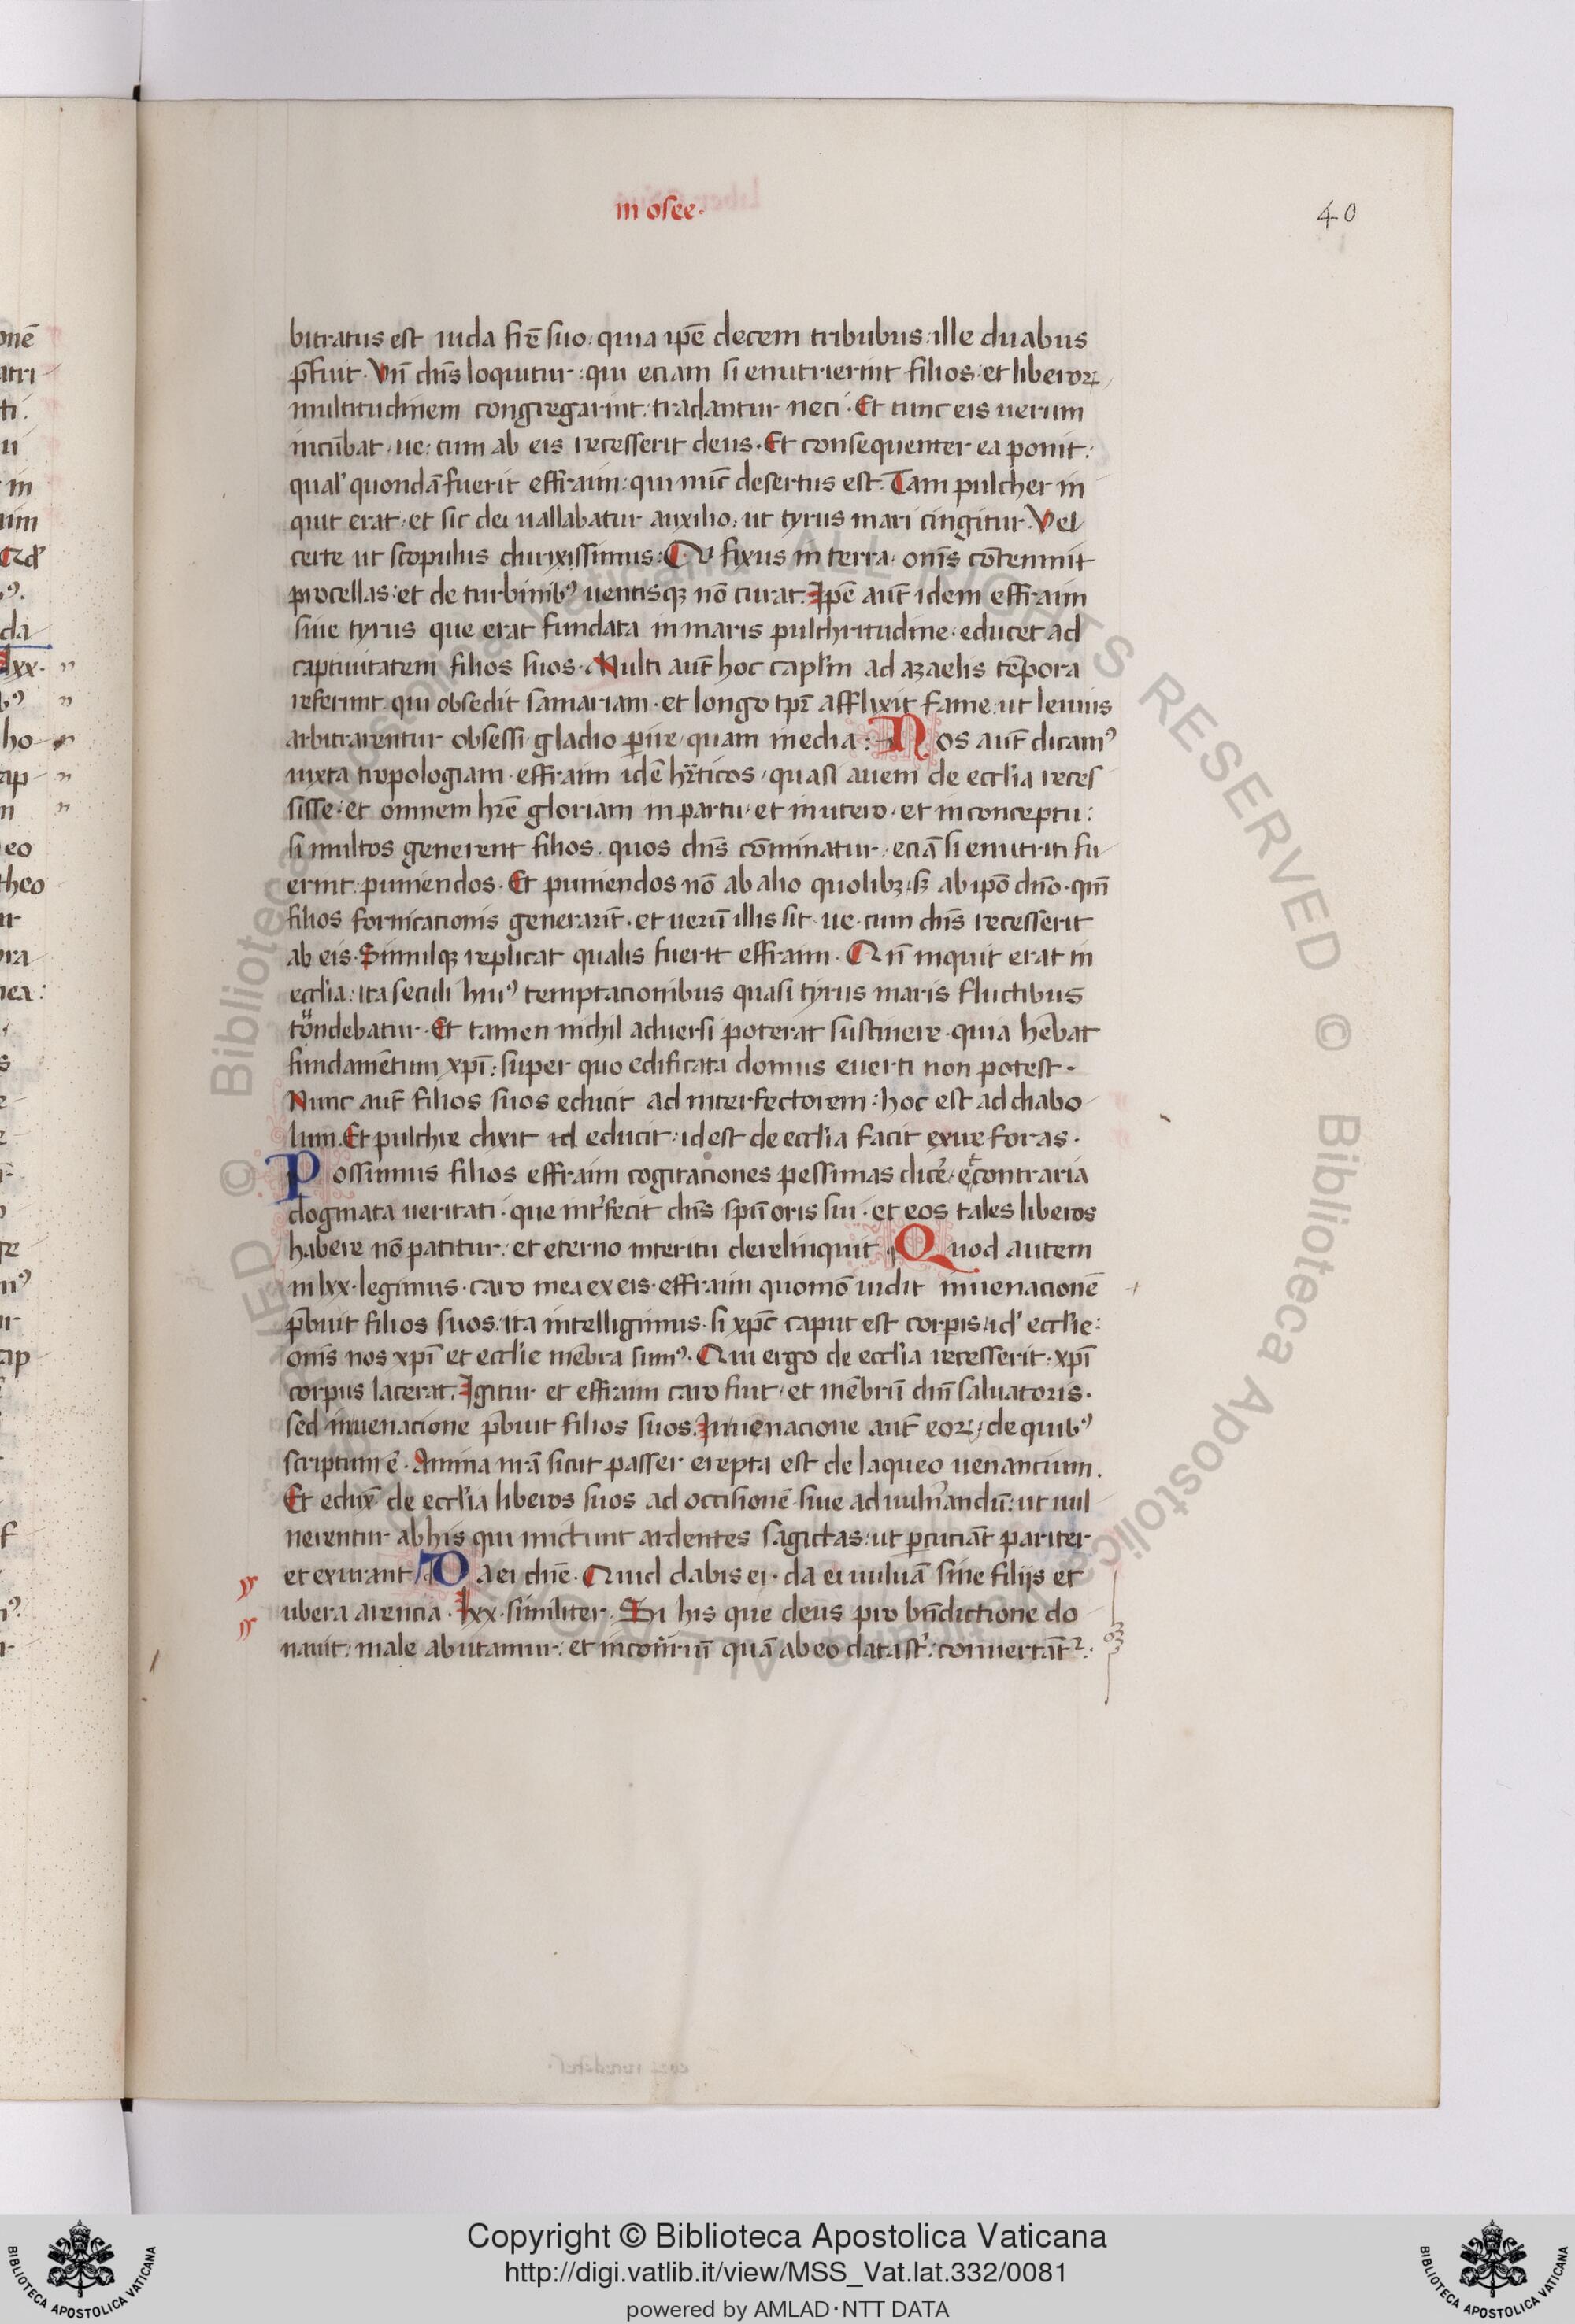 in osee·
40
bitratus est iuda fr̄e suo: quia ip̄e decem tribubus: ille duabus
p̄fuit· Vn̄ dn̄s loquitur: qui eciam si enutrierint filios: et liberoꝝ
multitudinem congregarint: tradantur neci· Et tunc eis uerum
incūbat, ue: cum ab eis recesserit deus· Et consequenter ea ponit:
qual' quondā fuerit effraim: qui nūc desertus est. Tam pulcher in
quit erat: et sic dei uallabatur auxilio: ut tyrus mari cingitur. Vel
certe ut scopulus durissimus: Qui fixus in terra, om̄s cōtemnit
procellas: et de turbinibꝰ uentisqꝫ nō curat. Ip̄e aut̄ idem effraim
siue tyrus que erat fundata in maris pulchritudine· educet ad
captiuitatem filios suos· Multi aut̄ hoc capl̄m ad azaelis tēpora
referunt: qui obsedit samariam· et longo tp̄r afflixit fame: ut leuius
arbitrarentur obsessi gladio ꝑire, quam inedia: Nos aut̄ dicamꝰ
iuxta tropologiam· effraim idē hr̄ticos, quasi auem de eccl'ia reces
sisse: et omnem hr̄e gloriam in partu, et in utero, et in conceptu:
si multos generent filios, quos dn̄s cōminatur, eciā si enutriti fu
erint: puniendos· Et puniendos nō ab alio quolibꝫ, sꝫ ab ip̄o dn̄o· qm̄
filios fornicationis generarīt· et uerū illis sit· ue· cum dn̄s recesserit
ab eis· Simulqꝫ replicat qualis fuerit effraim· Qn̄ inquit erat in
eccl'ia: ita seculi huiꝰ temptacionibus quasi tyrus maris fluctibus
tōndebatur· Et tamen nichil aduersi poterat sustinere· quia hēbat
fundamētum xp̄i: super quo edificata domus euerti non potest·
Nunc aut̄ filios suos educit ad interfectorem: hoc est ad diabo
lum. Et pulchre dixit ed educit: id est de eccl'ia facit exire foras·
Possumus filios effraim cogitaciones pessimas dicē, et contraria
dogmata ueritati· que int'fecit dn̄s spū oris sui· et eos tales liberos
habere nō patitur: et eterno interitu derelinquit· Quod autem
in lxx· legimus· caro mea ex eis· effraim quomō uidit inuenacionē
p̄buit filios suos: ita intelligimus· si xp̄c caput est corꝑis, id' eccl'ie:
om̄s nos xp̄i et eccl'ie mēbra sumꝰ· Qui ergo de eccl'ia recesserit: xp̄i
corpus lacerat. Igitur et effraim caro fuit, et mēbrū dn̄i saluatoris·
sed inuenacione p̄buit filios suos. Inuenacione aut̄ eoꝝ, de quibꝰ
scriptum ē· Anima nr̄a sicut passer erepta est de laqueo uenantium.
Et edux̄ de eccl'ia liberos suos ad occisionē siue ad uuln'andū: ut uul
nerentur ab his qui mictunt ardentes sagictas: ut ꝑcutiāt pariter
et exurant· Da ei dn̄e· Quid dabis ei· da ei uuluā sine filijs et
ubera arencia· lxx· similiter· Si his que deus pro bn̄dictione do
nauit: male abutamur: et in cont̄riū quā ab eo data st̄: conuertāt̄ꝛ·
Copyright © Biblioteca Apostolica Vaticana
http://digi.vatlib.it/view/MSS_Vat.lat.332/0081
powered by AMLAD·NTT DATA
BIBLIOTECA APOSTOLICA VATICANA
BIBLIOTECA APOSTOLICA VATICANA